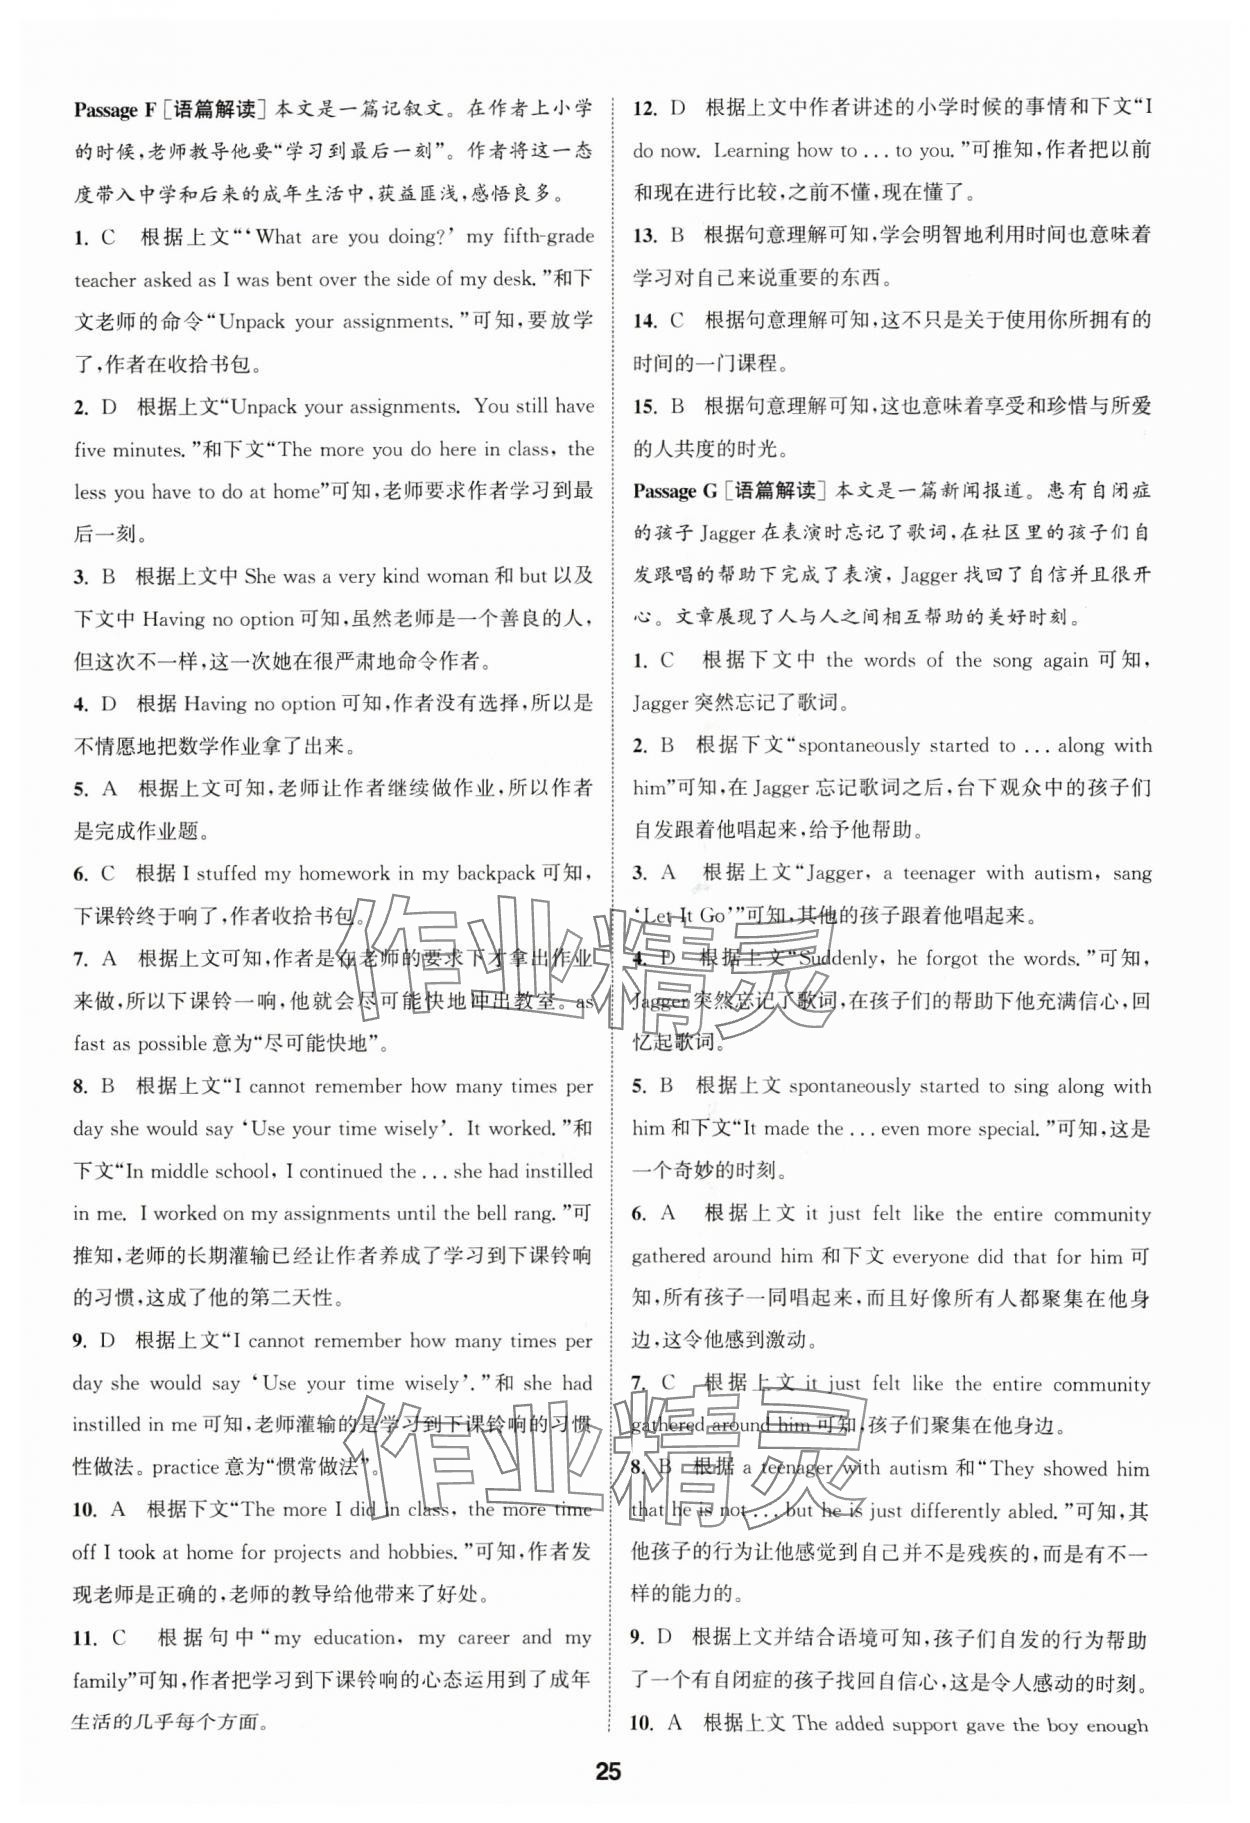 Passage F [语篇解读] 本文是一篇记叙文。在作者上小学
的时候,老师教导他要“学习到最后一刻”。作者将这一态
度带入中学和后来的成年生活中,获益匪浅,感悟良多。
1. C 根据上文“‘What are you doing?’ my fifth-grade
teacher asked as I was bent over the side of my desk.”和下
文老师的命令“Unpack your assignments.”可知,要放学
了,作者在收拾书包。
2. D 根据上文“Unpack your assignments. You still have
five minutes.”和下文“The more you do here in class, the
less you have to do at home”可知,老师要求作者学习到最
后一刻。
3. B 根据上文中 She was a very kind woman 和 but 以及
下文中 Having no option 可知,虽然老师是一个善良的人,
但这次不一样,这一次她在很严肃地命令作者。
4. D 根据 Having no option 可知,作者没有选择,所以是
不情愿地把数学作业拿了出来。
5. A 根据上文可知,老师让作者继续做作业,所以作者
是完成作业题。
6. C 根据 I stuffed my homework in my backpack 可知,
下课铃终于响了,作者收拾书包。
7. A 根据上文可知,作者是在老师的要求下才拿出作业
来做,所以下课铃一响,他就会尽可能快地冲出教室。as
fast as possible 意为“尽可能快地”。
8. B 根据上文“I cannot remember how many times per
day she would say ‘Use your time wisely’. It worked.”和
下文“In middle school, I continued the ... she had instilled
in me. I worked on my assignments until the bell rang.”可
推知,老师的长期灌输已经让作者养成了学习到下课铃响
的习惯,这成了他的第二天性。
9. D 根据上文“I cannot remember how many times per
day she would say ‘Use your time wisely’.”和 she had
instilled in me 可知,老师灌输的是学习到下课铃响的习惯
性做法。practice 意为“惯常做法”。
10. A 根据下文“The more I did in class, the more time
off I took at home for projects and hobbies.”可知,作者发
现老师是正确的,老师的教导给他带来了好处。
11. C 根据句中“my education, my career and my
family”可知,作者把学习到下课铃响的心态运用到了成年
生活的几乎每个方面。
12. D 根据上文中作者讲述的小学时候的事情和下文“I
do now. Learning how to ... to you.”可推知,作者把以前
和现在进行比较,之前不懂,现在懂了。
13. B 根据句意理解可知,学会明智地利用时间也意味着
学习对自己来说重要的东西。
14. C 根据句意理解可知,这不只是关于使用你所拥有的
时间的一门课程。
15. B 根据句意理解可知,这也意味着享受和珍惜与所爱
的人共度的时光。
Passage G [语篇解读] 本文是一篇新闻报道。患有自闭症
的孩子 Jagger 在表演时忘记了歌词,在社区里的孩子们自
发跟唱的帮助下完成了表演,Jagger 找回了自信并且很开
心。文章展现了人与人之间相互帮助的美好时刻。
1. C 根据下文中 the words of the song again 可知,
Jagger 突然忘记了歌词。
2. B 根据下文“spontaneously started to ... along with
him”可知,在 Jagger 忘记歌词之后,台下观众中的孩子们
自发跟着他唱起来,给予他帮助。
3. A 根据上文“Jagger, a teenager with autism, sang
‘Let It Go’”可知,其他的孩子跟着他唱起来。
4. D 根据上文“Suddenly, he forgot the words.”可知,
Jagger 突然忘记了歌词,在孩子们的帮助下他充满信心,回
忆起歌词。
5. B 根据上文 spontaneously started to sing along with
him 和下文“It made the ... even more special.”可知,这是
一个奇妙的时刻。
6. A 根据上文 it just felt like the entire community
gathered around him 和下文 everyone did that for him 可
知,所有孩子一同唱起来,而且好像所有人都聚集在他身
边,这令他感到激动。
7. C 根据上文 it just felt like the entire community
gathered around him 可知,孩子们聚集在他身边。
8. B 根据 a teenager with autism 和“They showed him
that he is not ... but he is just differently abled.”可知,其
他孩子的行为让他感觉到自己并不是残疾的,而是有不一
样的能力的。
9. D 根据上文并结合语境可知,孩子们自发的行为帮助
了一个有自闭症的孩子找回自信心,这是令人感动的时刻。
10. A 根据上文 The added support gave the boy enough
25
作业精灵
作业精灵